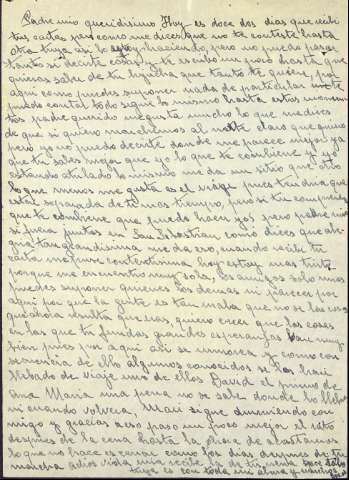 Padre mio queridísimo Hoy es doce dos dias que recibi
tus cartas pero como me dices que no te conteste hasta
otra tuya asi lo estoy haciendo, pero no puedo pasar
tanto sin decirte cosas y te escribo un poco hasta que
quieras saber de tu hijita que tanto te quiere, por
aqui como puedes suponer nada de particular
puedo contar todo sigue lo mismo hasta estos momen
tos padre querido me gusta mucho lo que me dices
de que si quiero marchemos al norte claro que quiero
pero yo no puedo decirte donde me parece mejor ya
que tu sabes mejor que yo lo que te combiene y yo
estando a tu lado lo mismo me da un sitio que otro
lo que menos me gusta es el viaje pues tendria que
estar separada de ti mas tiempo, pero si tu comprendes
que te combiene que puedo hacer yo pero padre mio
si fuera juntos en San Sebastian como dices que ale
gria tan grandisima me da eso, cuando recibi tu
carta me puse contentisima hoy estoy mas triste
porque me encuentro muy sola, los amigos solo unos
puedes suponer quienes los demas ni parecer por
aqui por que la gente es tan mala que no se las co
que ahora resulta que eras, quiero creer que las cosas
en las que tu fundas grandes esperanzas van muy
bien pues por aqui asi se rumorea y como con
secuencia de ello algunos conocidos se los han
llebado de viaje uno de ellos David el primo de
Ana Maria una pena no se sabe donde lo lleban
ni cuando volvera, Mari sigue durmiendo con
migo y gracias a eso paso un poco mejor el rato
despues de la cena hasta la hora de acostarnos
lo que no hace es cenar como los dias despues de tu
marcha adios vida mia recibe la de tu nena
tuya es con toda mi alma y muchos